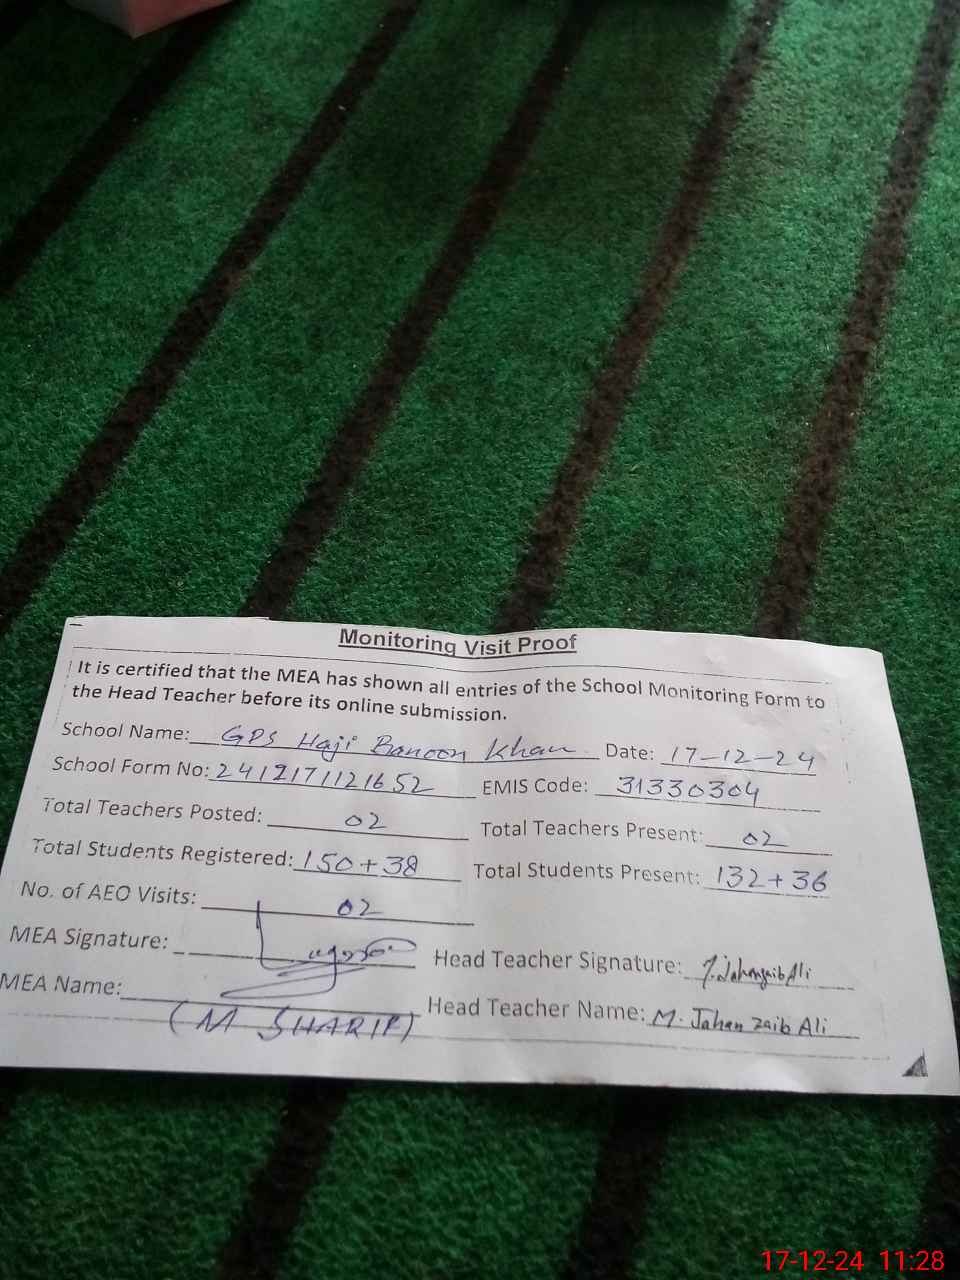 Monitoring Visit Proof
It is certified that the MEA has shown all entries of the School Monitoring Form to
the Head Teacher before its online submission.
School Name: GPS Haji Banoon Khan Date: 17-12-24
School Form No: 2412171121652 EMIS Code: 31330304
Total Teachers Posted: 02 Total Teachers Present: 02
Total Students Registered: 150+38 Total Students Present: 132+36
No. of AEO Visits: 02
MEA Signature: Head Teacher Signature: M.Jahanzaib Ali
MEA Name: (M SHARIF) Head Teacher Name: M. Jahan zaib Ali
17-12-24 11:28